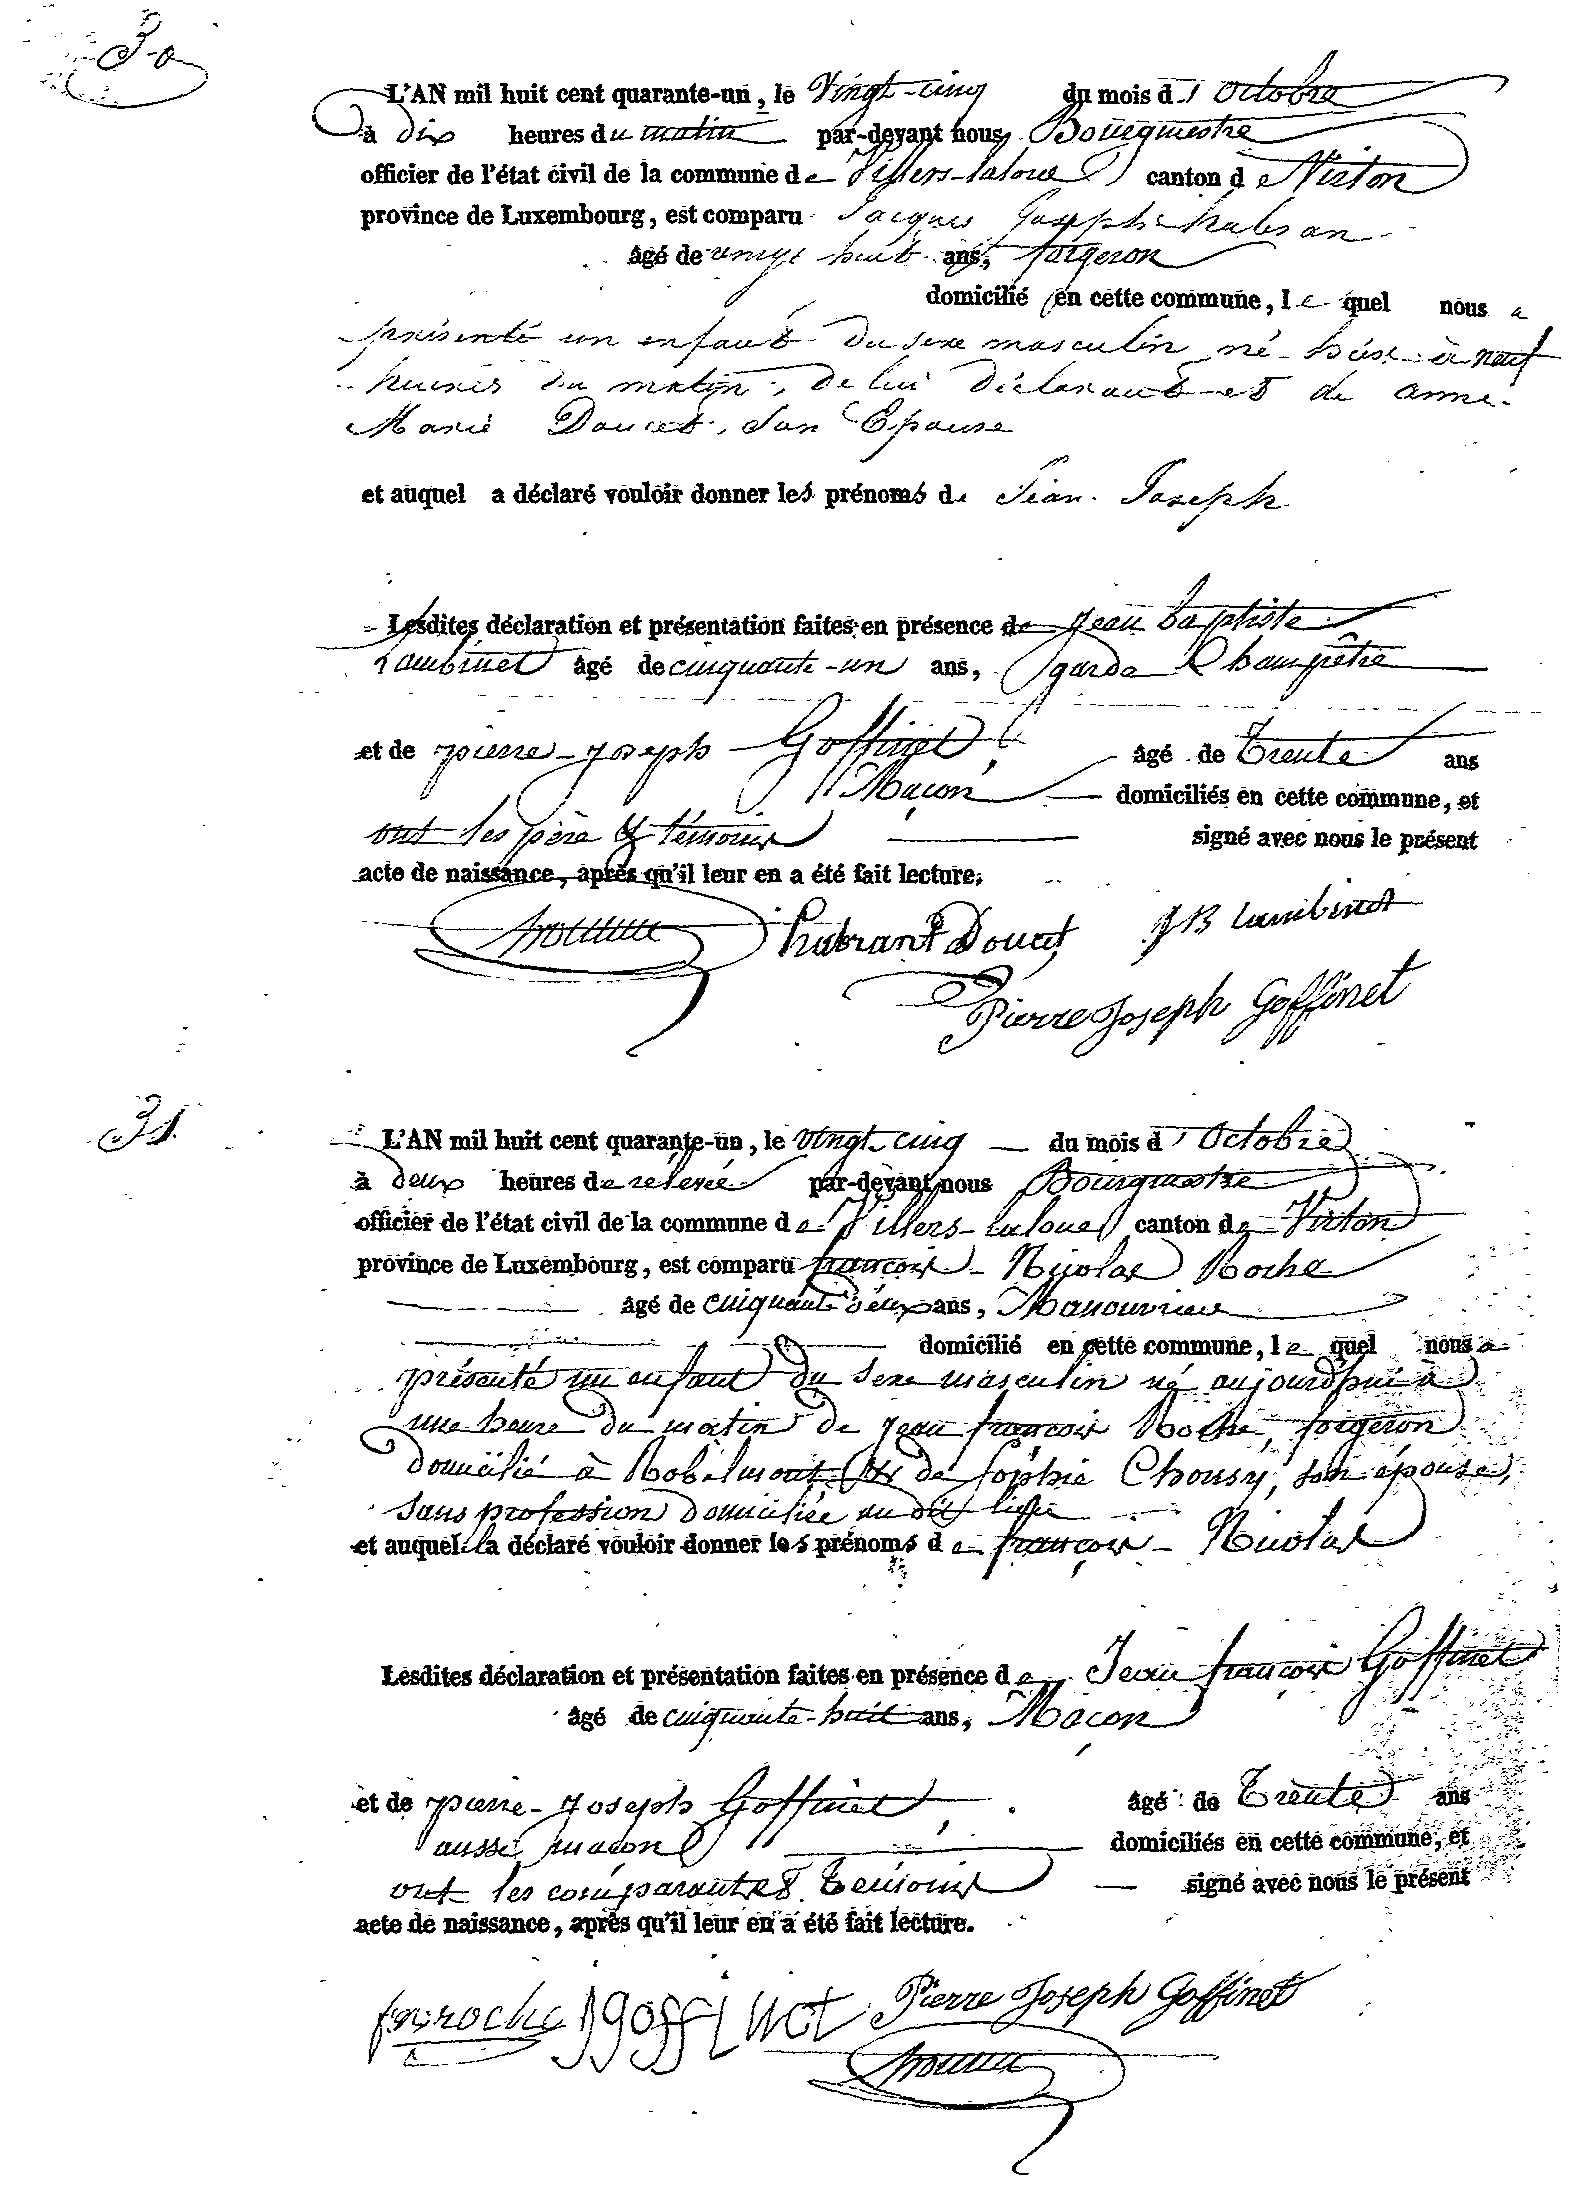 30
L'AN mil huit cent quarante-un, le vingt-cinq du mois d'Octobre
à dix heures du matin par-devant nous Bourgmestre
officier de l'état civil de la commune de Villers-laloue canton de Virton
province de Luxembourg, est comparu Jacques Joseph habran
âgé de vingt huit ans, forgeron
domicilié en cette commune, lequel nous a
présenté un enfant du sexe masculin né hier à neuf
heures du matin, de lui déclarant et de anne
Marie Doucet, son Epouse
et auquel a déclaré vouloir donner les prénoms de Jean Joseph
Lesdites déclaration et présentation faites en présence de Jean baptiste
Lambinet âgé de cinquante-un ans, garde Champêtre
et de pierre-joseph Goffinet, âgé de Trente ans
Maçon domiciliés en cette commune, et
ont les père & témoins signé avec nous le présent
acte de naissance, après qu'il leur en a été fait lecture.
habrant Doucet JB Lambinet
Pierre Joseph Goffinet
31
L'AN mil huit cent quarante-un, le vingt-cinq du mois d'Octobre
à deux heures de relevée par-devant nous Bourgmestre
officier de l'état civil de la commune de Villers-laloue canton de Virton
province de Luxembourg, est comparu françois-Nicolas Roche
âgé de cinquante deux ans, Manouvrier
domicilié en cette commune, lequel nous a
présenté un enfant du sexe masculin né aujourd'hui à
une heure du matin de jean françois Roche, forgeron
domicilié à Robelmont & de Sophie Chousy, son épouse,
sans profession domiciliée au dit lieu
et auquel a déclaré vouloir donner les prénoms de françois-Nicolas
Lesdites déclaration et présentation faites en présence de Jean françois Goffinet
âgé de cinquante-huit ans, Maçon
et de pierre-joseph Goffinet, âgé de Trente ans
aussi maçon domiciliés en cette commune, et
ont les comparant & témoins signé avec nous le présent
acte de naissance, après qu'il leur en a été fait lecture.
fnroche jjgoffinet Pierre Joseph Goffinet